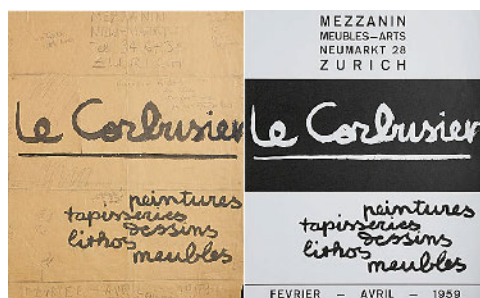 MEZZANIN
NEUMARKT
Le Corbusier
peintures
tapisseries
dessins
lithos
meubles
MEZZANIN
MEUBLES–ARTS
NEUMARKT 28
ZURICH
Le Corbusier
peintures
tapisseries
dessins
lithos
meubles
FEVRIER – AVRIL – 1959